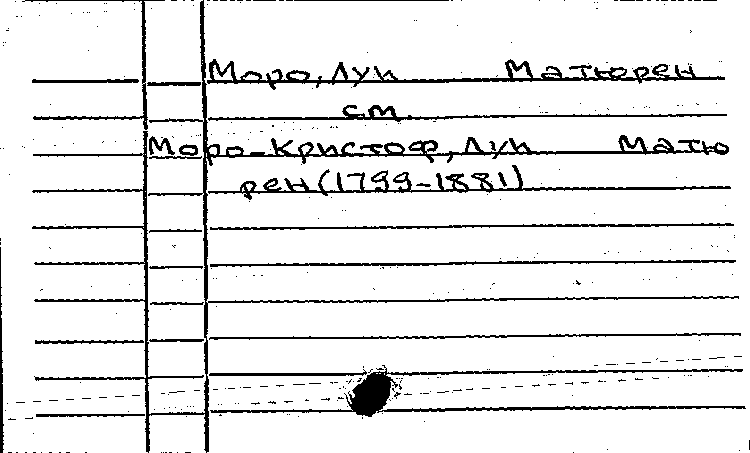 Моро, Луи Матюрен
см.
Моро-Кристоф, Луи Матю
рен (1799-1881)